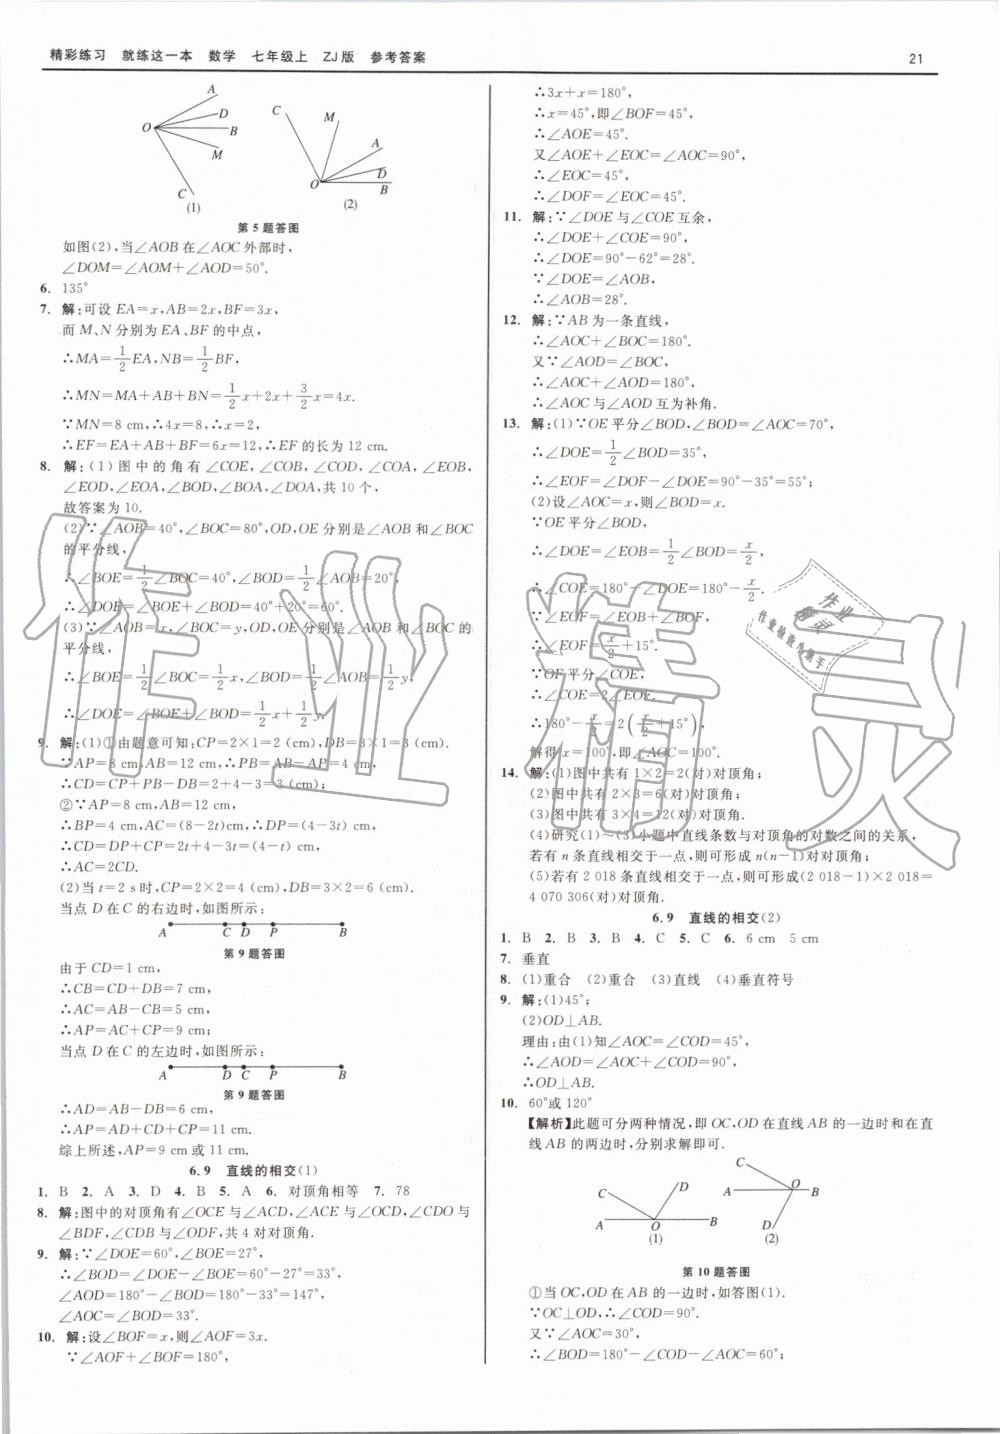 精彩练习 就练这一本 数学 七年级上 ZJ版 参考答案
21
A
D
O
B
M
C
(1)
C
M
A
D
O
B
(2)
第5题答图
如图(2),当∠AOB在∠AOC外部时,
∠DOM=∠AOM+∠AOD=50°.
6. 135°
7. 解:可设EA=x,AB=2x,BF=3x,
而M、N分别为EA、BF的中点,
∴MA=1/2EA,NB=1/2BF,
∴MN=MA+AB+BN=1/2x+2x+3/2x=4x.
∵MN=8 cm,∴4x=8,∴x=2,
∴EF=EA+AB+BF=6x=12,∴EF的长为12 cm.
8. 解:(1)图中的角有∠COE,∠COB,∠COD,∠COA,∠EOB,
∠EOD,∠EOA,∠BOD,∠BOA,∠DOA,共10个,
故答案为10.
(2)∵∠AOB=40°,∠BOC=80°,OD,OE分别是∠AOB和∠BOC
的平分线,
∴∠BOE=1/2∠BOC=40°,∠BOD=1/2∠AOB=20°,
∴∠DOE=∠BOE+∠BOD=40°+20°=60°.
(3)∵∠AOB=x,∠BOC=y,OD,OE分别是∠AOB和∠BOC的
平分线,
∴∠BOE=1/2∠BOC=1/2x,∠BOD=1/2∠AOB=1/2y,
∴∠DOE=∠BOE+∠BOD=1/2x+1/2y.
9. 解:(1)①由题意可知:CP=2×1=2(cm),DB=3×1=3(cm).
∵AP=8 cm,AB=12 cm,∴PB=AB-AP=4 cm,
∴CD=CP+PB-DB=2+4-3=3(cm);
②∵AP=8 cm,AB=12 cm,
∴BP=4 cm,AC=(8-2t)cm,∴DP=(4-3t) cm,
∴CD=DP+CP=2t+4-3t=(4-t) cm,
∴AC=2CD.
(2)当t=2 s时,CP=2×2=4 (cm),DB=3×2=6 (cm).
当点D在C的右边时,如图所示:
A C D P B
第9题答图
由于CD=1 cm,
∴CB=CD+DB=7 cm,
∴AC=AB-CB=5 cm,
∴AP=AC+CP=9 cm;
当点D在C的左边时,如图所示:
A D C P B
第9题答图
∴AD=AB-DB=6 cm,
∴AP=AD+CD+CP=11 cm.
综上所述,AP=9 cm或11 cm.
6.9 直线的相交(1)
1. B 2. A 3. D 4. B 5. A 6. 对顶角相等 7. 78
8. 解:图中的对顶角有∠OCE与∠ACD,∠ACE与∠OCD,∠CDO与
∠BDF,∠CDB与∠ODF,共4对对顶角.
9. 解:∵∠DOE=60°,∠BOE=27°,
∴∠BOD=∠DOE-∠BOE=60°-27°=33°,
∠AOD=180°-∠BOD=180°-33°=147°,
∠AOC=∠BOD=33°.
10. 解:设∠BOF=x,则∠AOF=3x.
∵∠AOF+∠BOF=180°,
∴3x+x=180°,
∴x=45°,即∠BOF=45°,
∴∠AOE=45°.
又∠AOE+∠EOC=∠AOC=90°,
∴∠EOC=45°,
∴∠DOF=∠EOC=45°.
11. 解:∵∠DOE与∠COE互余,
∴∠DOE+∠COE=90°,
∴∠DOE=90°-62°=28°.
∵∠DOE=∠AOB,
∴∠AOB=28°.
12. 解:∵AB为一条直线,
∴∠AOC+∠BOC=180°.
又∵∠AOD=∠BOC,
∴∠AOC+∠AOD=180°,
∴∠AOC与∠AOD互为补角.
13. 解:(1)∵OE平分∠BOD,∠BOD=∠AOC=70°,
∴∠DOE=1/2∠BOD=35°,
∴∠EOF=∠DOF-∠DOE=90°-35°=55°;
(2)设∠AOC=x,则∠BOD=x.
∵OE平分∠BOD,
∴∠DOE=∠EOB=1/2∠BOD=x/2,
∴∠COE=180°-∠DOE=180°-x/2.
∵∠EOF=∠EOB+∠BOF,
∴∠EOF=x/2+15°.
∵OF平分∠COE,
∴∠COE=2∠EOF,
∴180°-x/2=2(x/2+15°),
解得x=100°,即∠AOC=100°.
14. 解:(1)图中共有1×2=2(对)对顶角;
(2)图中共有2×3=6(对)对顶角;
(3)图中共有3×4=12(对)对顶角.
(4)研究(1)~(3)小题中直线条数与对顶角的对数之间的关系,
若有n条直线相交于一点,则可形成n(n-1)对对顶角;
(5)若有2 018条直线相交于一点,则可形成(2 018-1)×2 018=
4 070 306(对)对顶角.
6.9 直线的相交(2)
1. B 2. B 3. B 4. C 5. C 6. 6 cm 5 cm
7. 垂直
8. (1)重合 (2)重合 (3)直线 (4)垂直符号
9. 解:(1)45°;
(2)OD⊥AB.
理由:由(1)知∠AOC=∠COD=45°,
∴∠AOD=∠AOC+∠COD=90°,
∴OD⊥AB.
10. 60°或120°
【解析】此题可分两种情况,即OC,OD在直线AB的一边时和在直
线AB的两边时,分别求解即可.
C
D
A
O
B
(1)
C
A
O
B
D
(2)
第10题答图
①当OC,OD在AB的一边时,如答图(1).
∵OC⊥OD,∴∠COD=90°.
又∵∠AOC=30°,
∴∠BOD=180°-∠COD-∠AOC=60°;
作业精灵
作业
精灵
作业检查小帮手